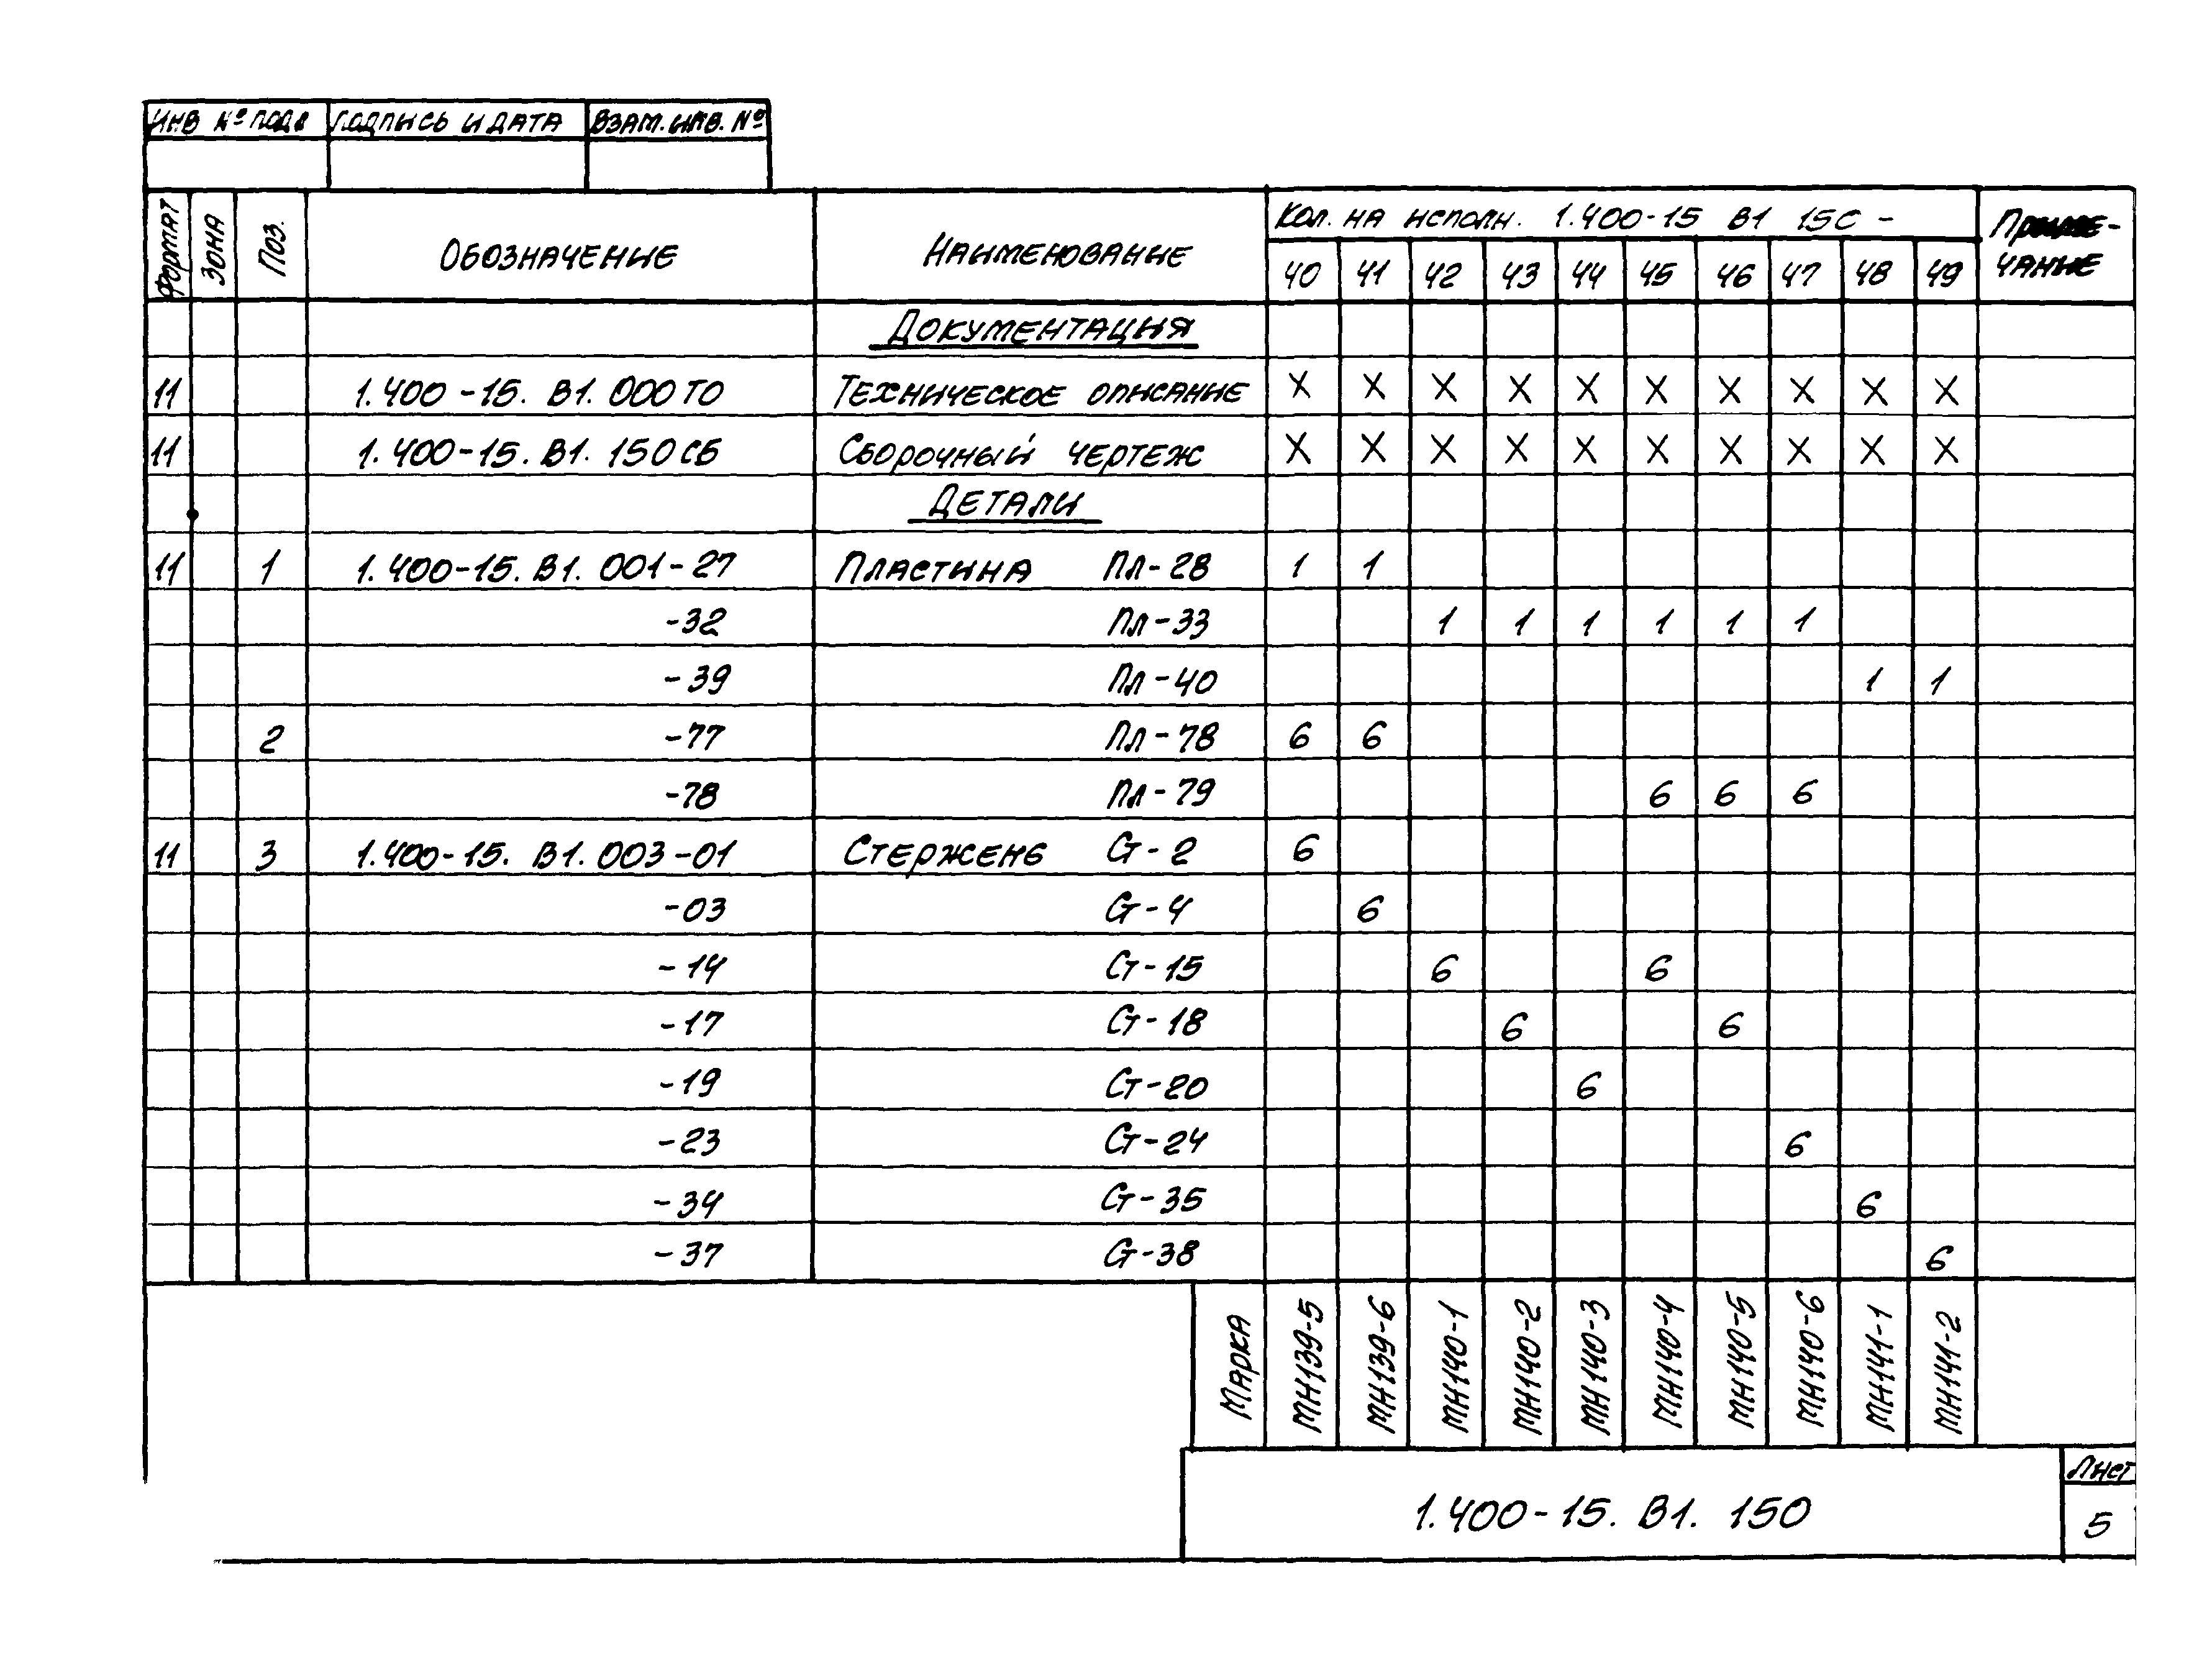 ИНВ № ПОДЛ ПОДПИСЬ И ДАТА ВЗАМ. ИНВ. №
ФОРМАТ ЗОНА ПОЗ. ОБОЗНАЧЕНИЕ НАИМЕНОВАНИЕ КОЛ. НА ИСПОЛН. 1.400-15 В1 150 - ПРИМЕ-
ЧАНИЕ
40 41 42 43 44 45 46 47 48 49
ДОКУМЕНТАЦИЯ
11 1.400-15. В1. 000 ТО ТЕХНИЧЕСКОЕ ОПИСАНИЕ X X X X X X X X X X
11 1.400-15. В1. 150 СБ СБОРОЧНЫЙ ЧЕРТЕЖ X X X X X X X X X X
ДЕТАЛИ
11 1 1.400-15. В1. 001-27 ПЛАСТИНА ПЛ-28 1 1
-32 ПЛ-33 1 1 1 1 1 1
-39 ПЛ-40 1 1
2 -77 ПЛ-78 6 6
-78 ПЛ-79 6 6 6
11 3 1.400-15. В1. 003-01 СТЕРЖЕНЬ СТ-2 6
-03 СТ-4 6
-14 СТ-15 6 6
-17 СТ-18 6 6
-19 СТ-20 6
-23 СТ-24 6
-34 СТ-35 6
-37 СТ-38 6
МАРКА МН139-5 МН139-6 МН140-1 МН140-2 МН140-3 МН140-4 МН140-5 МН140-6 МН141-1 МН141-2
1.400-15. В1. 150
ЛИСТ
5